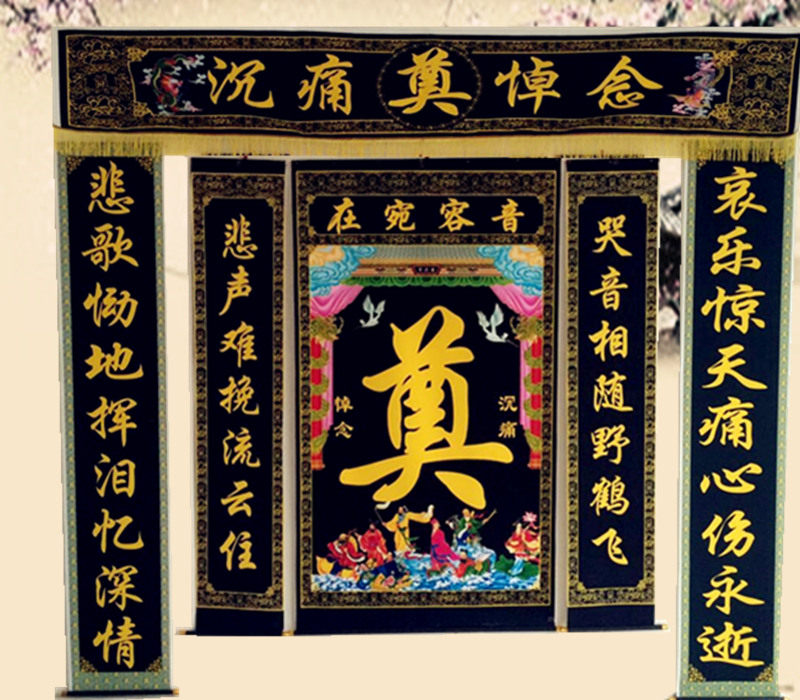 沉痛奠悼念
悲歌恸地挥泪忆深情
悲声难挽流云住
在宛容音
奠
悼念
沉痛
哭音相随野鹤飞
哀乐惊天痛心伤永逝